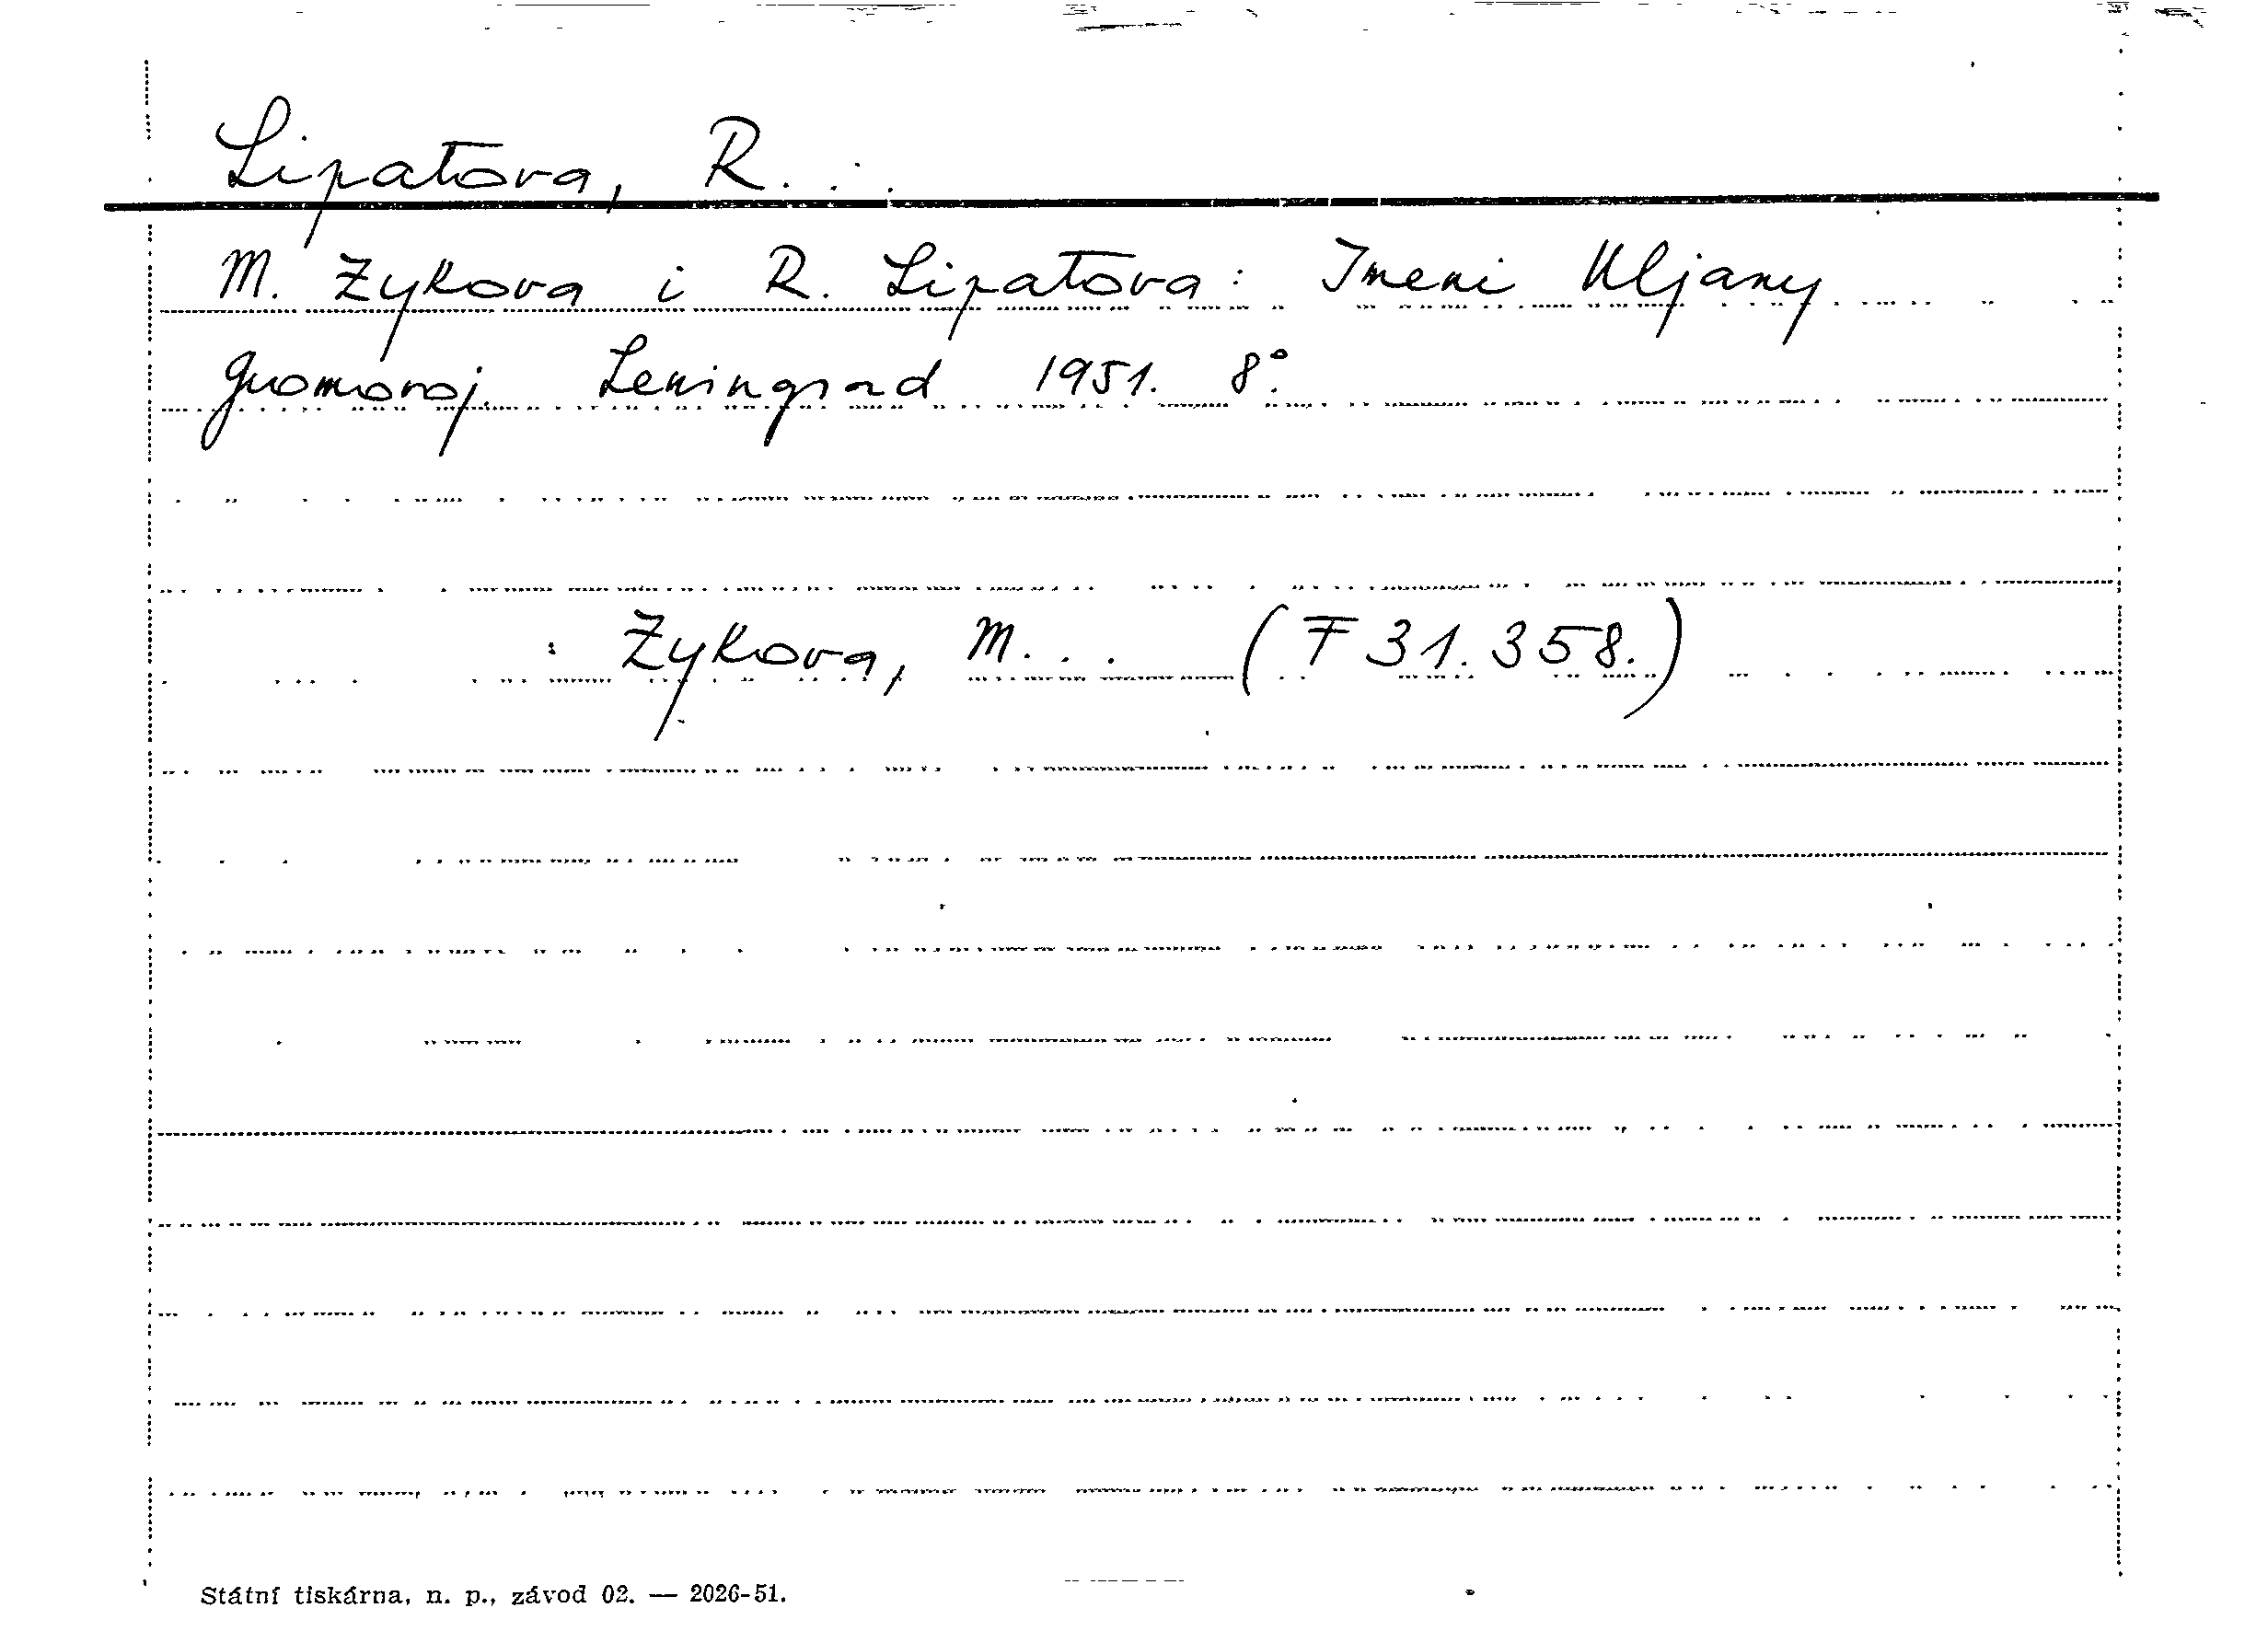 Lipatova, R. . .
M. Zykova i R. Lipatova: Imeni Uljany
gromovoj. Leningrad 1951. 8°.
Zykova, M. . . (F 31.358.)
Státní tiskárna, n. p., závod 02. — 2026-51.